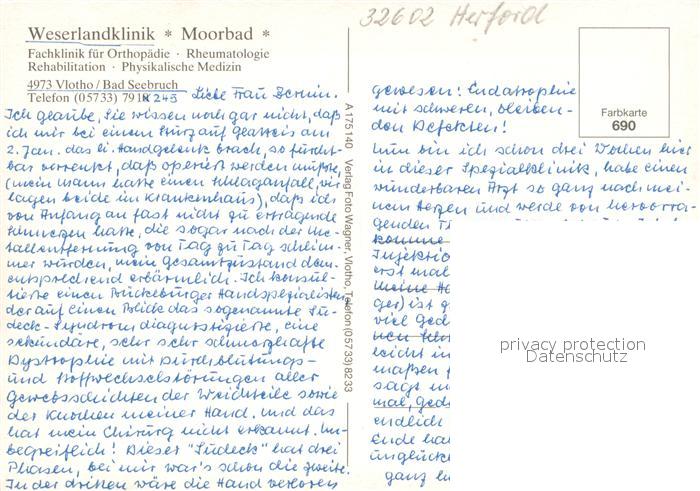 32602 Herford
Weserlandklinik * Moorbad *
Fachklinik für Orthopädie · Rheumatologie
Rehabilitation · Physikalische Medizin
4973 Vlotho / Bad Seebruch
Telefon (05733) 791 x 249
Liebe Frau
Ich glaube, Sie wissen noch gar nicht, daß
ich mir bei einem Sturz auf Glatteis am
2. Jan. das li. Handgelenk brach, so furcht-
bar verrenkt, daß operiert werden mußte,
(mein Mann hatte einen Schlaganfall, wir
lagen beide im Krankenhaus), daß ich
von Anfang an fast nicht zu ertragende
Schmerzen hatte, die sogar nach der Me-
tallentfernung von Tag zu Tag schlim-
mer wurden, mein Gesamtzustand dem-
entsprechend erbärmlich. Ich konsul-
tierte einen Bückeburger Handspezialisten
der auf einen Blick das sogenannte Su-
deck-Syndrom diagnostizierte, eine
sekundäre, sehr sehr schmerzhafte
Dystrophie mit Durchblutungs-
und Stoffwechselstörungen aller
Gewebsschichten der Weichteile sowie
der Knochen meiner Hand. Und das
hat mein Chirurg nicht erkannt. Un-
begreiflich! Dieser "Sudeck" hat drei
Phasen, bei mir war's schon die zweite.
In der dritten wäre die Hand verloren
A 175 140 Verlag Foto Wagner, Vlotho, Telefon (05733) 8233
Farbkarte
690
gewesen! Endatrophie
mit schweren, bleiben-
den Defekten!
Nun bin ich schon drei Wochen hier
in dieser Spezialklinik, habe einen
wunderbaren Arzt so ganz nach mei-
nem Herzen und werde von hervorra-
genden
komme
Injektio
erst mal
meine
ger) ist
viel
leicht in
maßen
sagt
mal,
endlich
Ende
unglück
ganz
privacy protection
Datenschutz